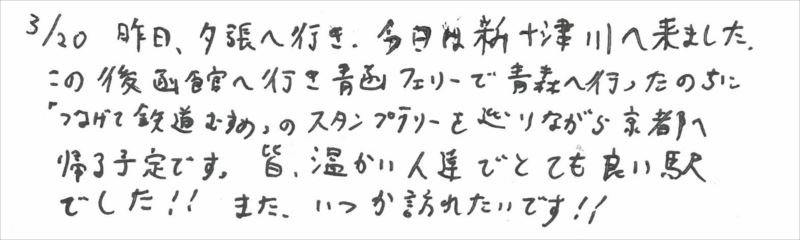 3/20 昨日、夕張へ行き、今日は新十津川へ来ました。
この後函館へ行き青函フェリーで青森へ行ったのちに
「つなげて鉄道むすめ」のスタンプラリーを巡りながら京都へ
帰る予定です。皆、温かい人達でとても良い駅
でした!! また、いつか訪れたいです!!